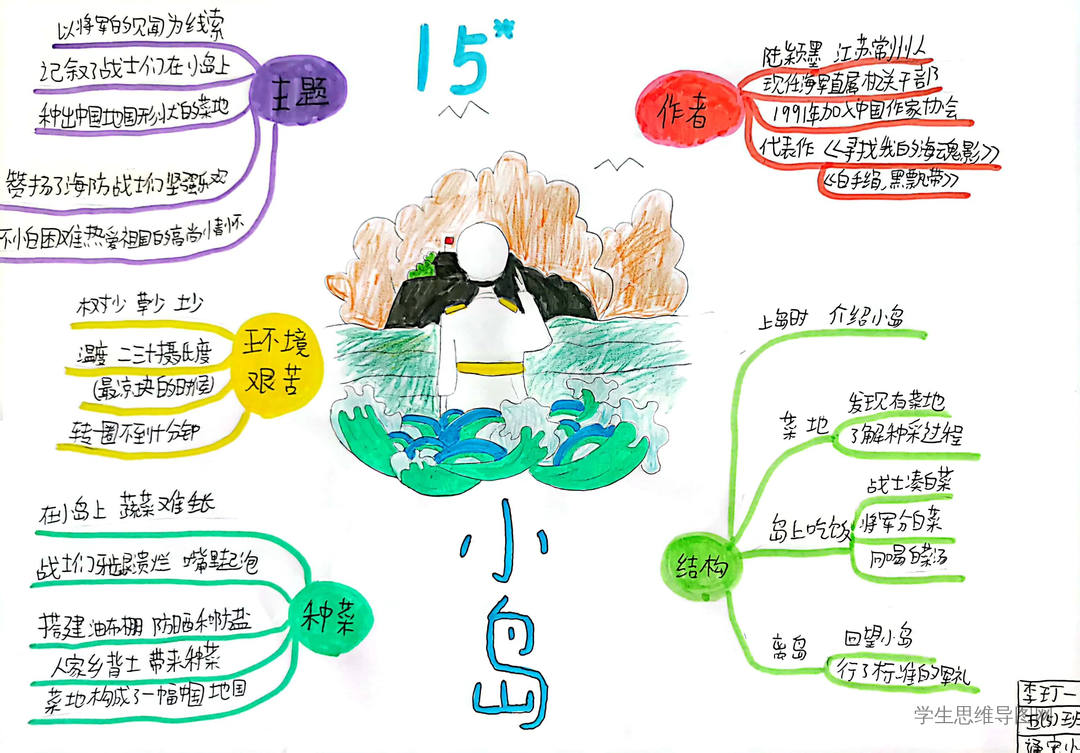 15*
小岛
主题
以将军的见闻为线索
记叙了战士们在小岛上
种出中国地图形状的菜地
赞扬了海防战士们坚强乐观
不小白困难热爱祖国的高尚情怀
作者
陆颖墨 江苏常州人
现任海军直属机关干部
1991年加入中国作家协会
代表作《寻找我的海魂影》
《白手绢,黑飘带》
环境
艰苦
树少 草少 土少
温度 二三十摄氏度
(最凉快的时候)
转一圈不到十分钟
种菜
在小岛上 蔬菜难生长
战士们牙龈溃烂 嘴里起泡
搭建油布棚 防晒和防盐
人家乡背土 带来种菜
菜地构成了一幅中国地图
结构
上岛时 介绍小岛
菜地
发现有菜地
了解种采过程
岛上吃饭
战士凑白菜
将军分白菜
同喝白菜汤
离岛
回望小岛
行了标准的军礼
学生思维导图网
李玎一
五(5)班